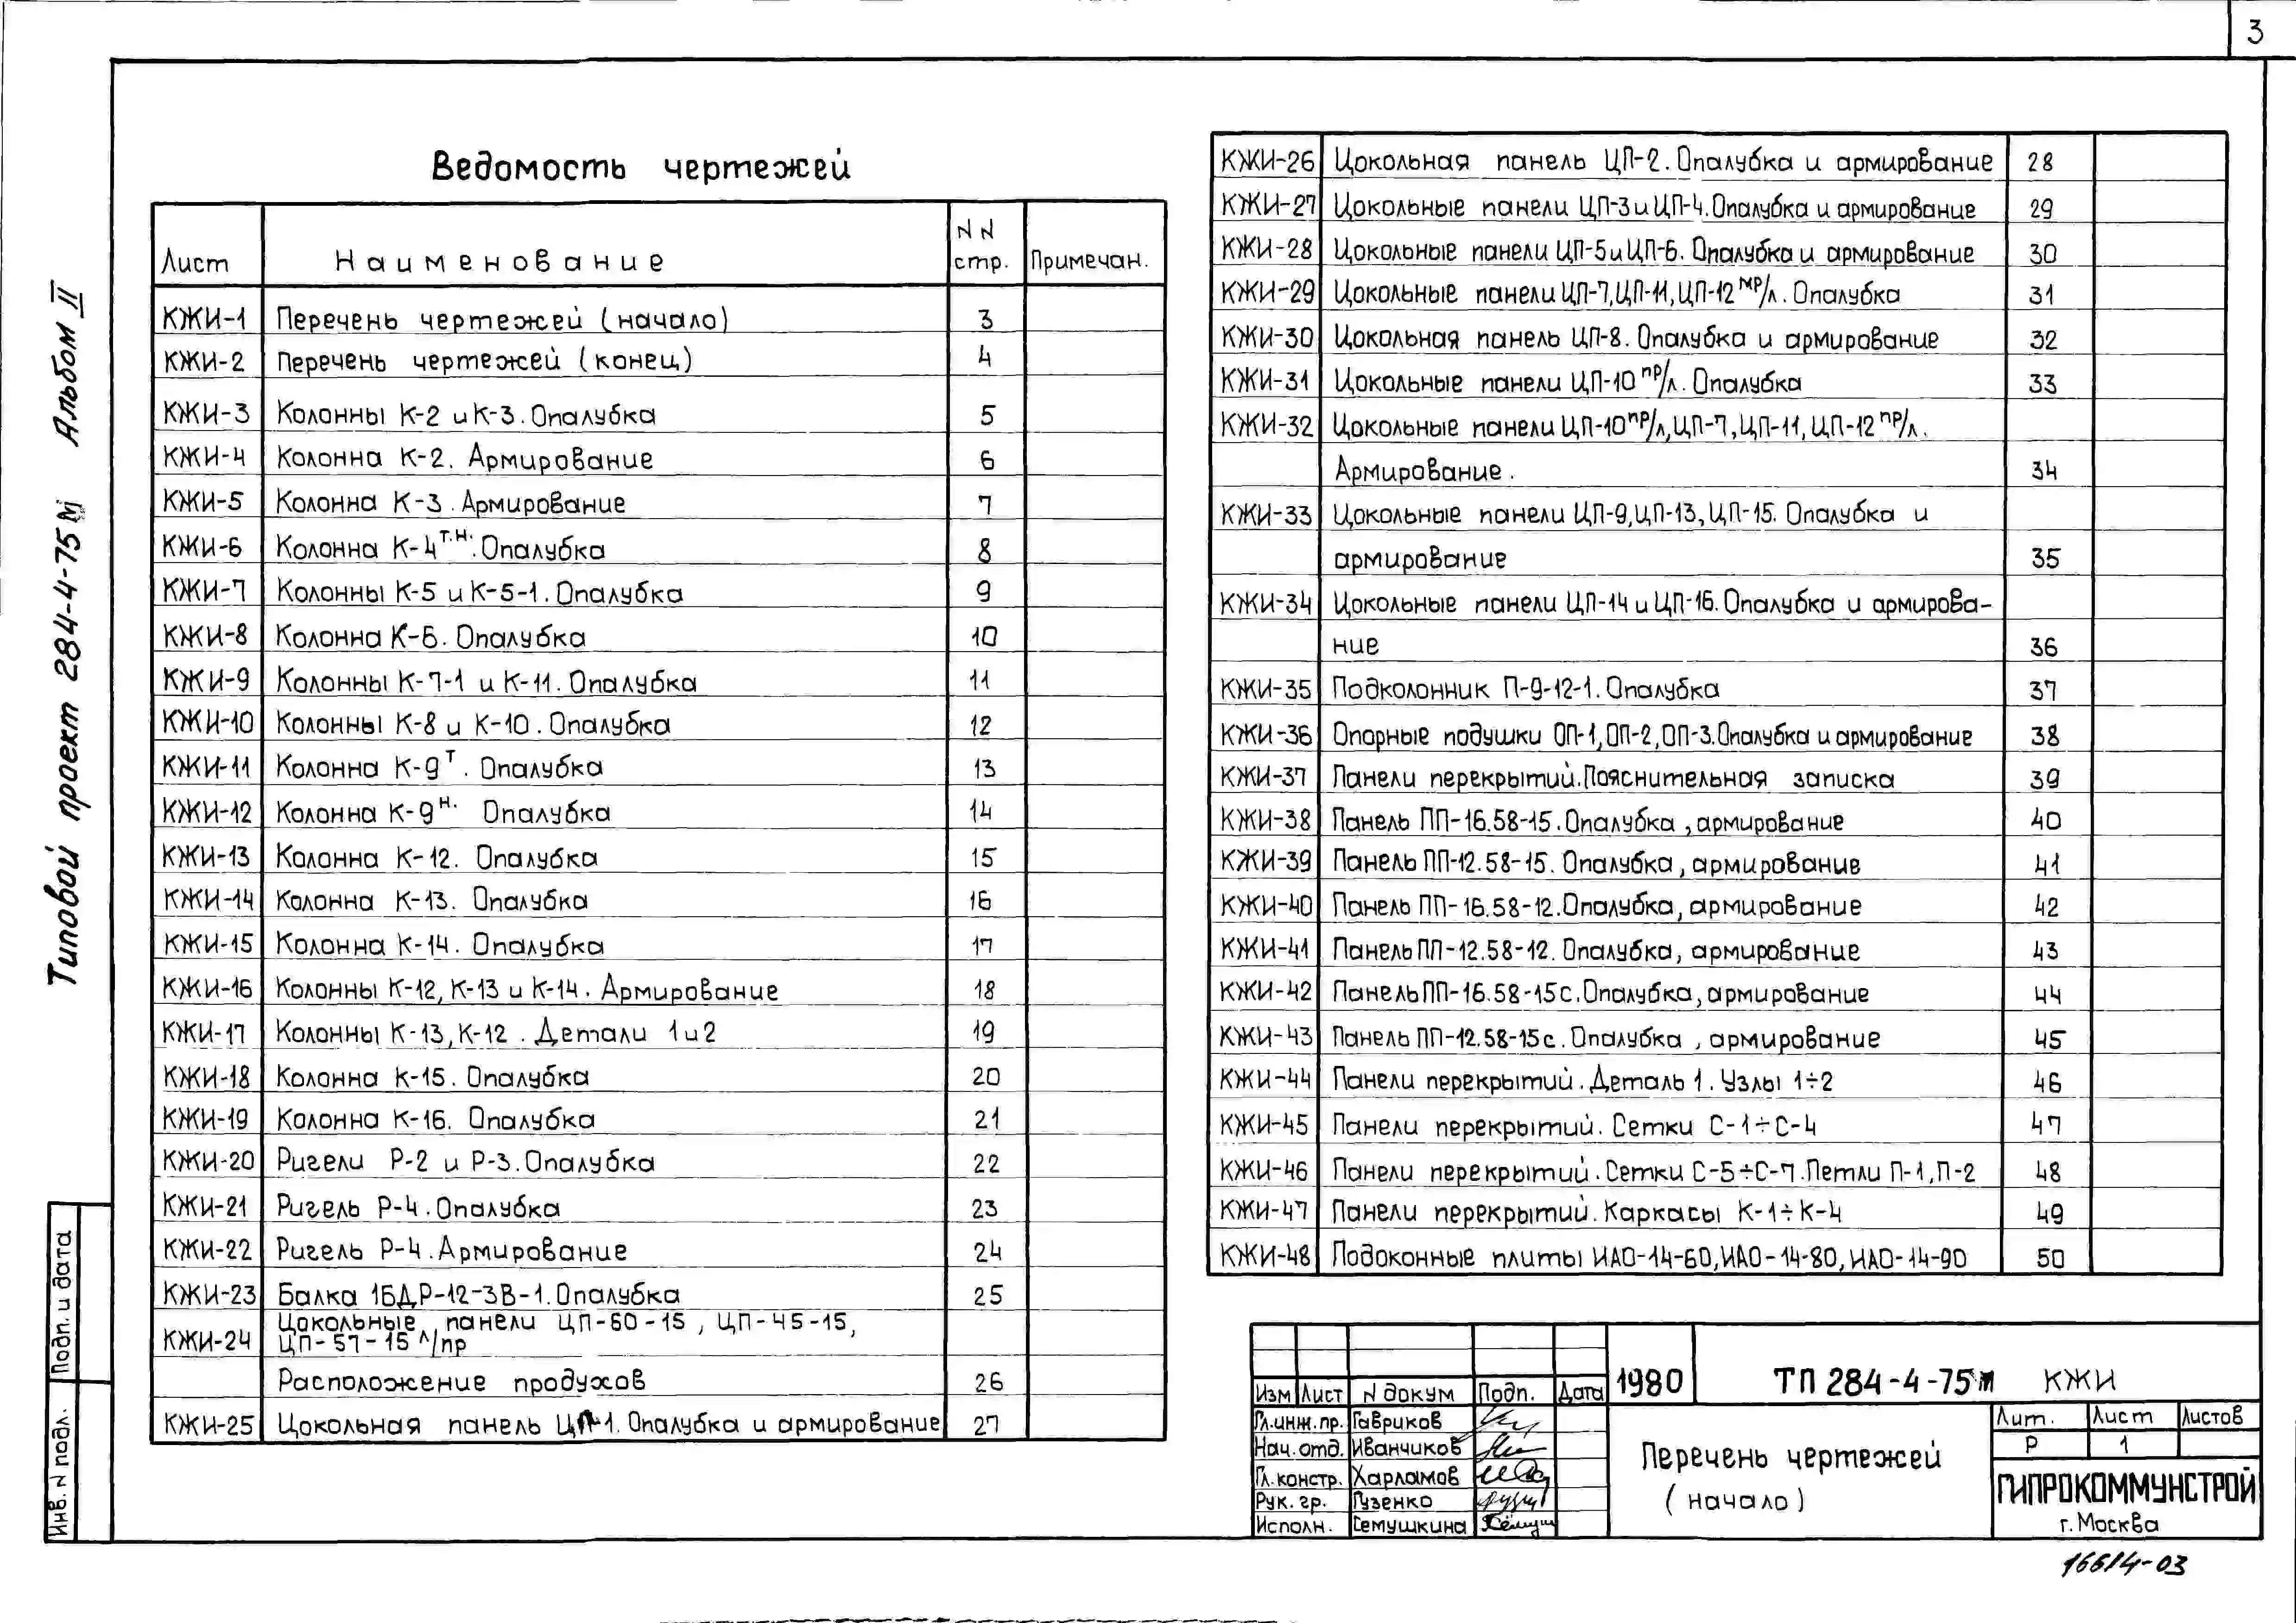 3
Типовой проект 284-4-75м Альбом II
Ведомость чертежей
Лист Наименование NN стр. Примечан.
КЖИ-1 Перечень чертежей (начало) 3
КЖИ-2 Перечень чертежей (конец) 4
КЖИ-3 Колонны К-2 и К-3. Опалубка 5
КЖИ-4 Колонна К-2. Армирование 6
КЖИ-5 Колонна К-3. Армирование 7
КЖИ-6 Колонна К-4т.н. Опалубка 8
КЖИ-7 Колонны К-5 и К-5-1. Опалубка 9
КЖИ-8 Колонна К-6. Опалубка 10
КЖИ-9 Колонны К-7-1 и К-11. Опалубка 11
КЖИ-10 Колонны К-8 и К-10. Опалубка 12
КЖИ-11 Колонна К-9т. Опалубка 13
КЖИ-12 Колонна К-9н. Опалубка 14
КЖИ-13 Колонна К-12. Опалубка 15
КЖИ-14 Колонна К-13. Опалубка 16
КЖИ-15 Колонна К-14. Опалубка 17
КЖИ-16 Колонны К-12, К-13 и К-14. Армирование 18
КЖИ-17 Колонны К-13, К-12. Детали 1 и 2 19
КЖИ-18 Колонна К-15. Опалубка 20
КЖИ-19 Колонна К-16. Опалубка 21
КЖИ-20 Ригели Р-2 и Р-3. Опалубка 22
КЖИ-21 Ригель Р-4. Опалубка 23
КЖИ-22 Ригель Р-4. Армирование 24
КЖИ-23 Балка 1БДР-12-3В-1. Опалубка 25
КЖИ-24 Цокольные панели ЦП-60-15, ЦП-45-15,
ЦП-57-15 л/пр
Расположение продухов 26
КЖИ-25 Цокольная панель ЦП-1. Опалубка и армирование 27
КЖИ-26 Цокольная панель ЦП-2. Опалубка и армирование 28
КЖИ-27 Цокольные панели ЦП-3 и ЦП-4. Опалубка и армирование 29
КЖИ-28 Цокольные панели ЦП-5 и ЦП-6. Опалубка и армирование 30
КЖИ-29 Цокольные панели ЦП-7, ЦП-11, ЦП-12 мр/л. Опалубка 31
КЖИ-30 Цокольная панель ЦП-8. Опалубка и армирование 32
КЖИ-31 Цокольные панели ЦП-10 пр/л. Опалубка 33
КЖИ-32 Цокольные панели ЦП-10пр/л, ЦП-7, ЦП-11, ЦП-12 пр/л.
Армирование. 34
КЖИ-33 Цокольные панели ЦП-9, ЦП-13, ЦП-15. Опалубка и
армирование 35
КЖИ-34 Цокольные панели ЦП-14 и ЦП-16. Опалубка и армирова-
ние 36
КЖИ-35 Подколонник П-9-12-1. Опалубка 37
КЖИ-36 Опорные подушки ОП-1, ОП-2, ОП-3. Опалубка и армирование 38
КЖИ-37 Панели перекрытий. Пояснительная записка 39
КЖИ-38 Панель ПП-16.58-15. Опалубка, армирование 40
КЖИ-39 Панель ПП-12.58-15. Опалубка, армирование 41
КЖИ-40 Панель ПП-16.58-12. Опалубка, армирование 42
КЖИ-41 Панель ПП-12.58-12. Опалубка, армирование 43
КЖИ-42 Панель ПП-16.58-15с. Опалубка, армирование 44
КЖИ-43 Панель ПП-12.58-15с. Опалубка, армирование 45
КЖИ-44 Панели перекрытий. Деталь 1. Узлы 1÷2 46
КЖИ-45 Панели перекрытий. Сетки С-1÷С-4 47
КЖИ-46 Панели перекрытий. Сетки С-5÷С-7. Петли П-1, П-2 48
КЖИ-47 Панели перекрытий. Каркасы К-1÷К-4 49
КЖИ-48 Подоконные плиты ИАО-14-60, ИАО-14-80, ИАО-14-90 50
Подп. и дата
Инв. N подл.
Изм Лист N докум Подп. Дата
1980
ТП 284-4-75м КЖИ
Гл.инж.пр. Гавриков
Нач. отд. Иванчиков
Гл. констр. Харламов
Рук. гр. Гузенко
Исполн. Семушкина
Перечень чертежей
(начало)
Лит. Лист Листов
Р 1
ГИПРОКОММУНСТРОЙ
г. Москва
16614-03